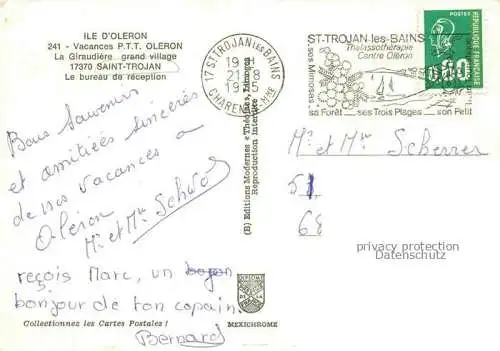 ILE D'OLERON
241 - Vacances P.T.T. OLERON
La Giraudière grand village
17370 SAINT-TROJAN
Le bureau de réception
Bons Souvenirs
et amitiées sincères
de nos vacances a
Oléron
Mr et Mme
reçois Marc, un
bonjour de ton copain.
Bernard
Collectionnez les Cartes Postales !
MEXICHROME
(B) Editions Modernes « Théojac », Limoges
Reproduction interdite
17 ST TROJAN LES BAINS
19 H
21 8
1975
CHARENTE MME
ST-TROJAN-les-BAINS
Thalassothérapie
Centre Oléron
ses Mimosas
sa Forêt ses Trois Plages son Petit
POSTES
0,60
REPUBLIQUE FRANCAISE
Mr et Mme Scherrer
68
privacy protection
Datenschutz